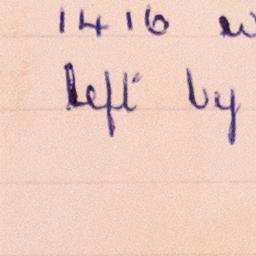 1416
left by